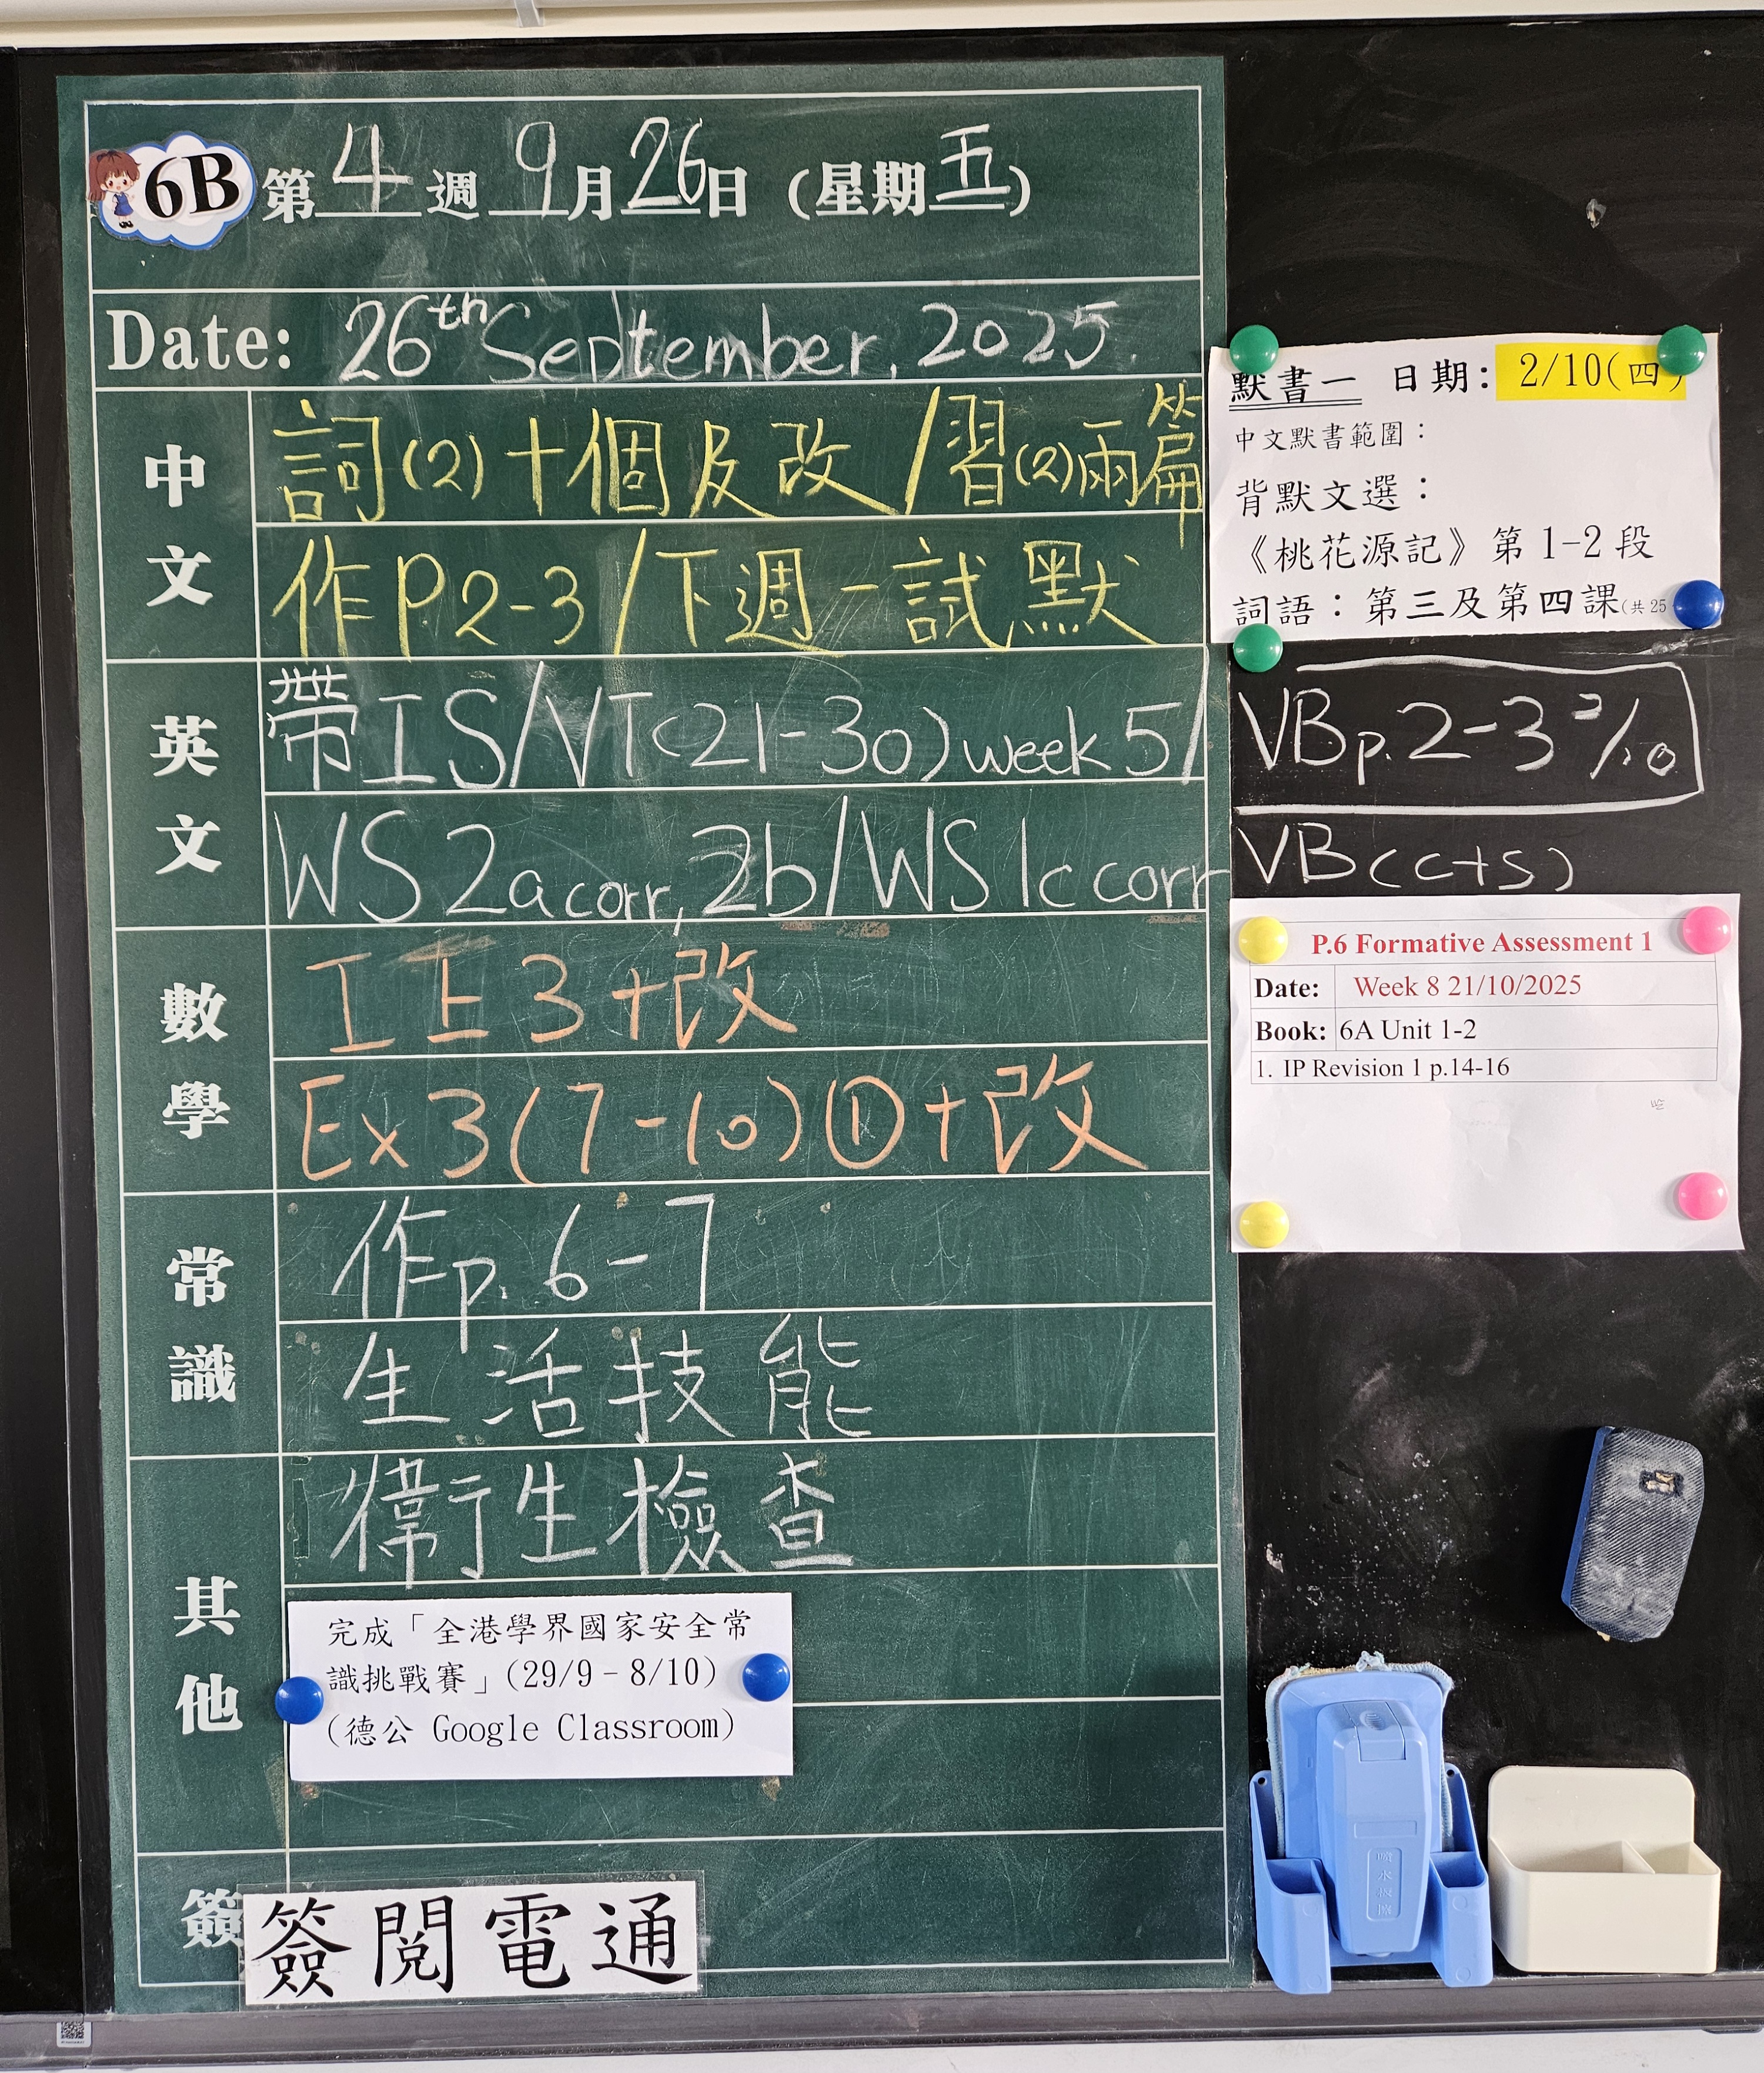 6B 第 4 週 9 月 26 日 (星期五)
Date: 26th September, 2025.
中文
詞(2)十個及改/習(2)兩篇
作P2-3/下週一試默
英文
帶IS/VT(21-30)week 5/
WS 2a corr, 2b/WS 1c corr
數學
工上3+改
Ex 3(7-10)①+改
常識
作p.6-7
生活技能
其他
衞生檢查
完成「全港學界國家安全常
識挑戰賽」(29/9-8/10)
(德公 Google Classroom)
簽
簽閱電通
默書一 日期: 2/10(四)
中文默書範圍:
背默文選:
《桃花源記》第 1-2 段
詞語:第三及第四課(共 25
VB p.2-3 2/10
VB (c+s)
P.6 Formative Assessment 1
Date: Week 8 21/10/2025
Book: 6A Unit 1-2
1. IP Revision 1 p.14-16